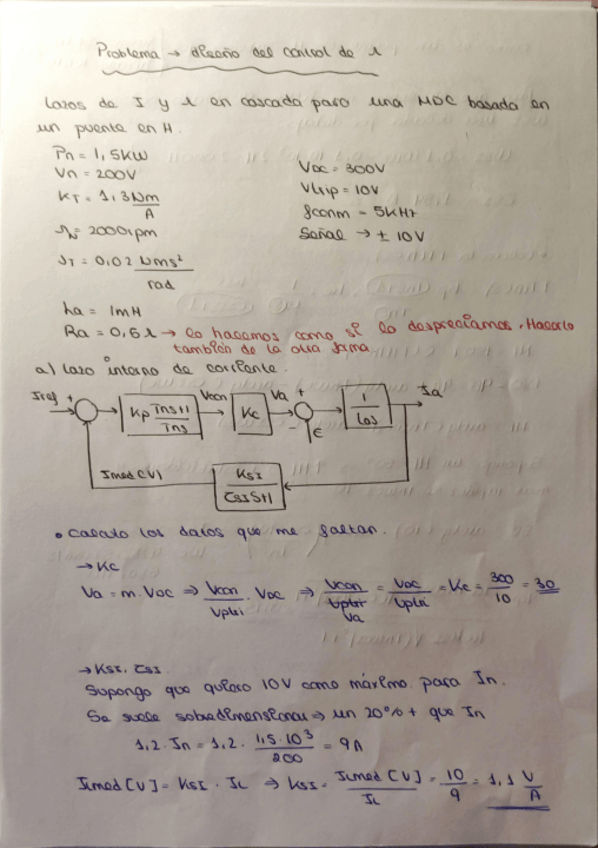 Problema → diseño del control de Ω
Lazos de I y Ω en cascada para una MDC basada en
un puente en H.
Pn = 1,5KW
Vn = 200V
KT = 1,3 Nm/A
Ωn = 2000rpm
JT = 0,02 Nms²/rad
La = 1mH
Ra = 0,6Ω → lo hacemos como si lo despreciamos. Hacerlo
también de la otra forma
VDC = 300V
Vtrip = 10V
fconm = 5KHz
Señal → ± 10V
a) Lazo interno de corriente.
Iref + Kp Tns+1/Tns Vcon Kc Va + - E 1/Las Ia
Imed(V) KSI/τSI S+1
• Calculo los datos que me faltan.
→ Kc
Va = m. VDC ⇒ Vcon/Vptri . VDC ⇒ Vcon/Vptri Va = VDC/Vptri = Kc = 300/10 = 30
→ KSI, τSI.
Supongo que quiero 10V como máximo para In.
Se suele sobredimensionar ⇒ un 20% + que In
1,2 . In = 1,2 . 1,5 . 10³/200 = 9A
ILmed [V] = KSI . IL ⇒ KSI = ILmed [V]/IL = 10/9 = 1,1 V/A